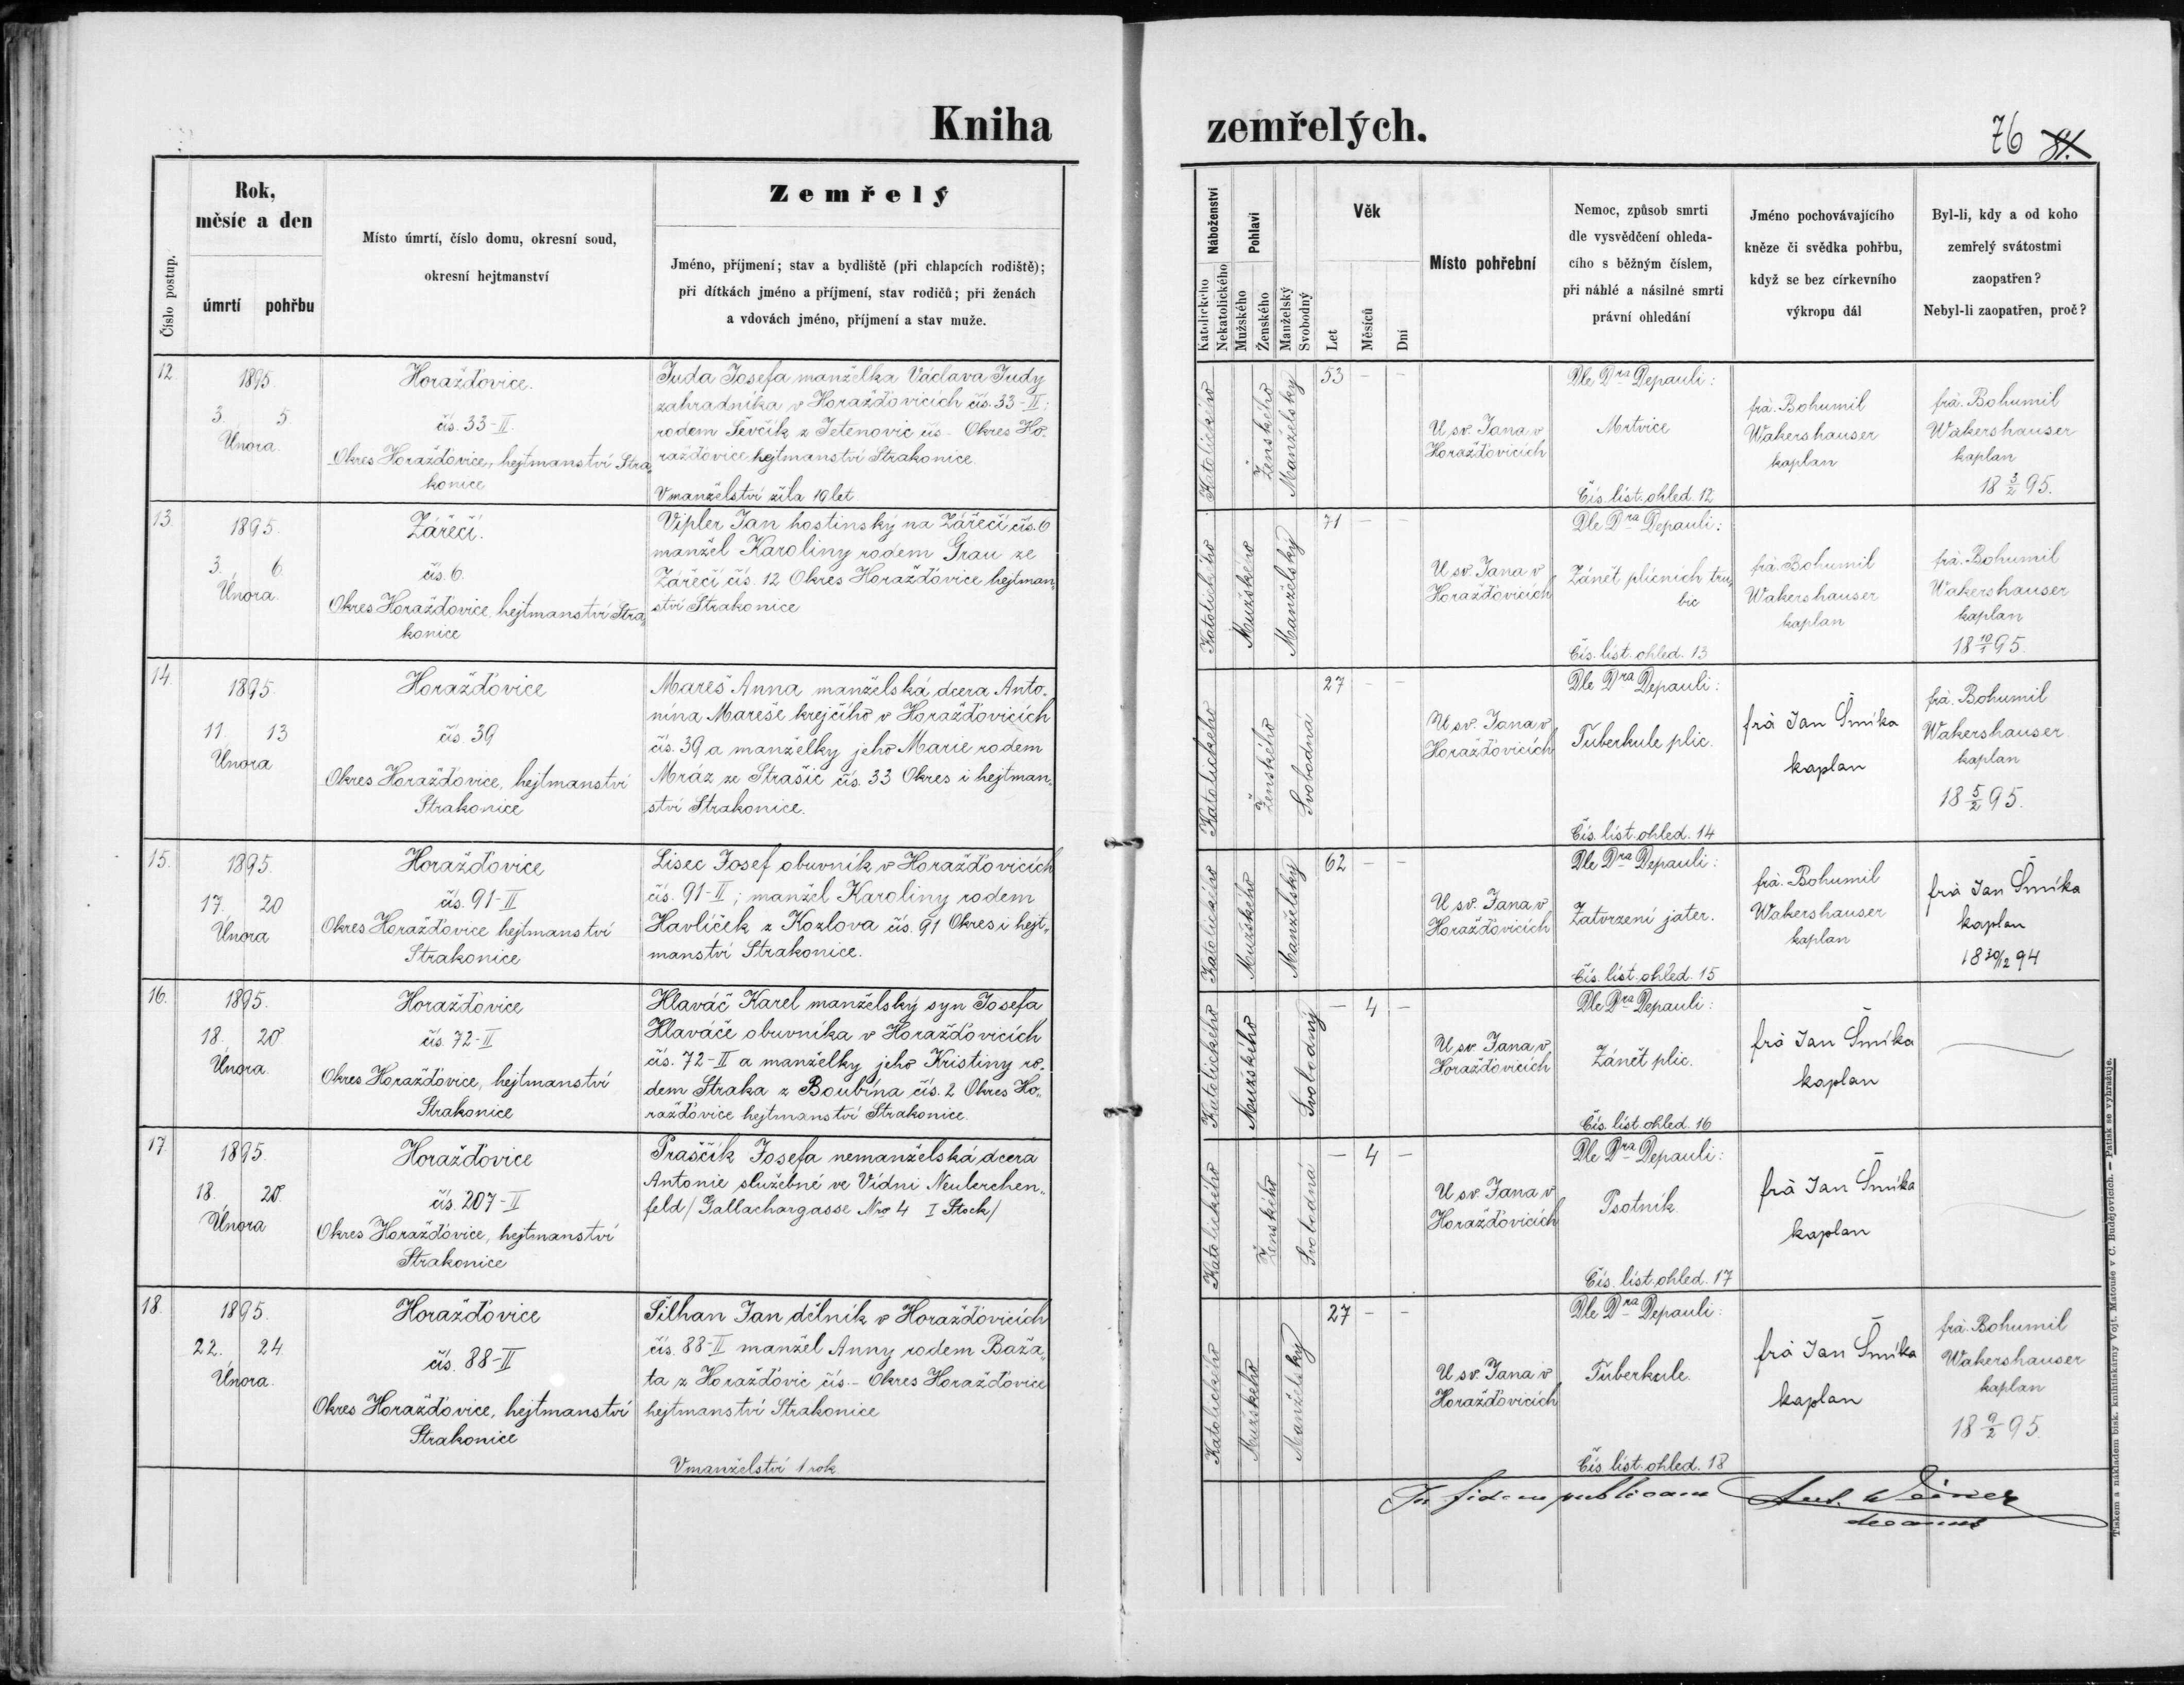 Kniha
zemřelých.
76 81.
Číslo postup.
Rok,
měsíc a den
úmrtí pohřbu
Místo úmrtí, číslo domu, okresní soud,
okresní hejtmanství
Zemřelý
Jméno, příjmení; stav a bydliště (při chlapcích rodiště);
při dítkách jméno a příjmení, stav rodičů; při ženách
a vdovách jméno, příjmení a stav muže.
Náboženství
Katolického
Nekatolického
Pohlaví
Mužského
Ženského
Manželský
Svobodný
Věk
Let
Měsíců
Dní
Místo pohřební
Nemoc, způsob smrti
dle vysvědčení ohleda-
cího s běžným číslem,
při náhlé a násilné smrti
právní ohledání
Jméno pochovávajícího
kněze či svědka pohřbu,
když se bez církevního
výkropu dál
Byl-li, kdy a od koho
zemřelý svátostmi
zaopatřen?
Nebyl-li zaopatřen, proč?
12
1895.
3. 5
Února.
Horažďovice.
čís. 33-II.
Okres Horažďovice, hejtmanství Stra-
konice
Juda Josefa manželka Václava Judy
zahradníka v Horažďovicích čís. 33-II;
rodem Ševčík z Jetenovic čís - Okres Ho-
ražďovice hejtmanství Strakonice.
V manželství žila 19 let
Katolického
Ženského
Manželský
53 - -
U sv. Jana v
Horažďovicích
Dle Dra Depauli:
Mrtvice
Čís. list. ohled. 12
frá. Bohumil
Wakershauser
kaplan
frá. Bohumil
Wakershauser
kaplan
18 3/2 95.
13.
1895.
3. 6.
Února.
Zářečí.
čís. 6.
Okres Horažďovice, hejtmanství Stra-
konice
Vipler Jan hostinský na Zářečí čís. 6
manžel Karoliny rodem Grau ze
Zářečí čís. 12 Okres Horažďovice hejtman-
ství Strakonice
Katolického
Mužského
Manželský
71 - -
U sv. Jana v
Horažďovicích
Dle Dra Depauli:
Zánět plícních tru-
bic
Čís. list. ohled. 13
frá. Bohumil
Wakershauser
kaplan
frá. Bohumil
Wakershauser
kaplan
18 10/1 95.
14.
1895.
11. 13
Února
Horažďovice
čís. 39
Okres Horažďovice, hejtmanství
Strakonice
Mareš Anna manželská dcera Anto-
nína Mareše krejčího v Horažďovicích
čís. 39 a manželky jeho Marie rodem
Mráz ze Strašic čís. 33 Okres i hejtman-
ství Strakonice.
Katolického
Ženského
Svobodná
27 - -
U sv. Jana v
Horažďovicích
Dle Dra Depauli:
Tuberkule plic.
Čís. list. ohled. 14
frá Jan Šmíka
kaplan
frá. Bohumil
Wakershauser
kaplan
18 5/2 95.
15.
1895.
17. 20
Února
Horažďovice
čís. 91-II
Okres Horažďovice hejtmanství
Strakonice
Lisec Josef obuvník v Horažďovicích
čís. 91-II; manžel Karoliny rodem
Havlíček z Kozlova čís. 91 Okres i hejt-
manství Strakonice.
Katolického
Mužského
Manželský
62 - -
U sv. Jana v
Horažďovicích
Dle Dra Depauli:
Zatvrzení jater.
Čís. list. ohled. 15
frá. Bohumil
Wakershauser
kaplan
frá Jan Šmíka
kaplan
18 30/12 94
16.
1895.
18. 20
Února.
Horažďovice
čís. 72-II
Okres Horažďovice, hejtmanství
Strakonice
Hlaváč Karel manželský syn Josefa
Hlaváče obuvníka v Horažďovicích
čís. 72-II a manželky jeho Kristiny ro-
dem Straka z Boubína čís. 2 Okres Ho-
ražďovice hejtmanství Strakonice.
Katolického
Mužského
Svobodný
- 4 -
U sv. Jana v
Horažďovicích
Dle Dra Depauli:
Zánět plic.
Čís. list. ohled. 16
frá Jan Šmíka
kaplan
17
1895.
18. 20.
Února
Horažďovice
čís. 207-II
Okres Horažďovice, hejtmanství
Strakonice
Praščik Josefa nemanželská dcera
Antonie služebné ve Vídni Neulerchen-
feld / Gallachargasse Nro 4 I Stock/
Katolického
Ženského
Svobodná
- 4 -
U sv. Jana v
Horažďovicích
Dle Dra Depauli:
Psotník
Čís. list. ohled. 17
frá Jan Šmíka
kaplan
18.
1895.
22. 24.
Února.
Horažďovice
čís. 88-II
Okres Horažďovice, hejtmanství
Strakonice
Šilhan Jan dělník v Horažďovicích
čís. 88-II manžel Anny rodem Baža-
ta z Horažďovic čís.- Okres Horažďovice
hejtmanství Strakonice
V manželství 1 rok
Katolického
Mužského
Manželský
27 - -
U sv. Jana v
Horažďovicích
Dle Dra Depauli:
Tuberkule.
Čís. list. ohled. 18
frá Jan Šmíka
kaplan
frá. Bohumil
Wakershauser
kaplan
18 9/2 95.
In fidem publicam Ant. Weiner
decanus
Tiskem a nákladem bisk. knihtiskárny Vojt. Matouše v Č. Budějovicích. — Patisk se vyhražuje.